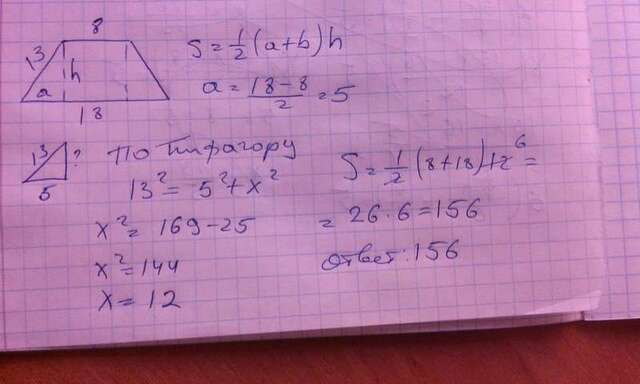 8
13 h
a
18
S = 1/2 (a+b) h
a = (18-8)/2 = 5
13 ?
5
По Пифагору
13² = 5² + x²
x² = 169 - 25
x² = 144
x = 12
S = 1/2 (8+18) 12 6 =
= 26 · 6 = 156
Ответ: 156